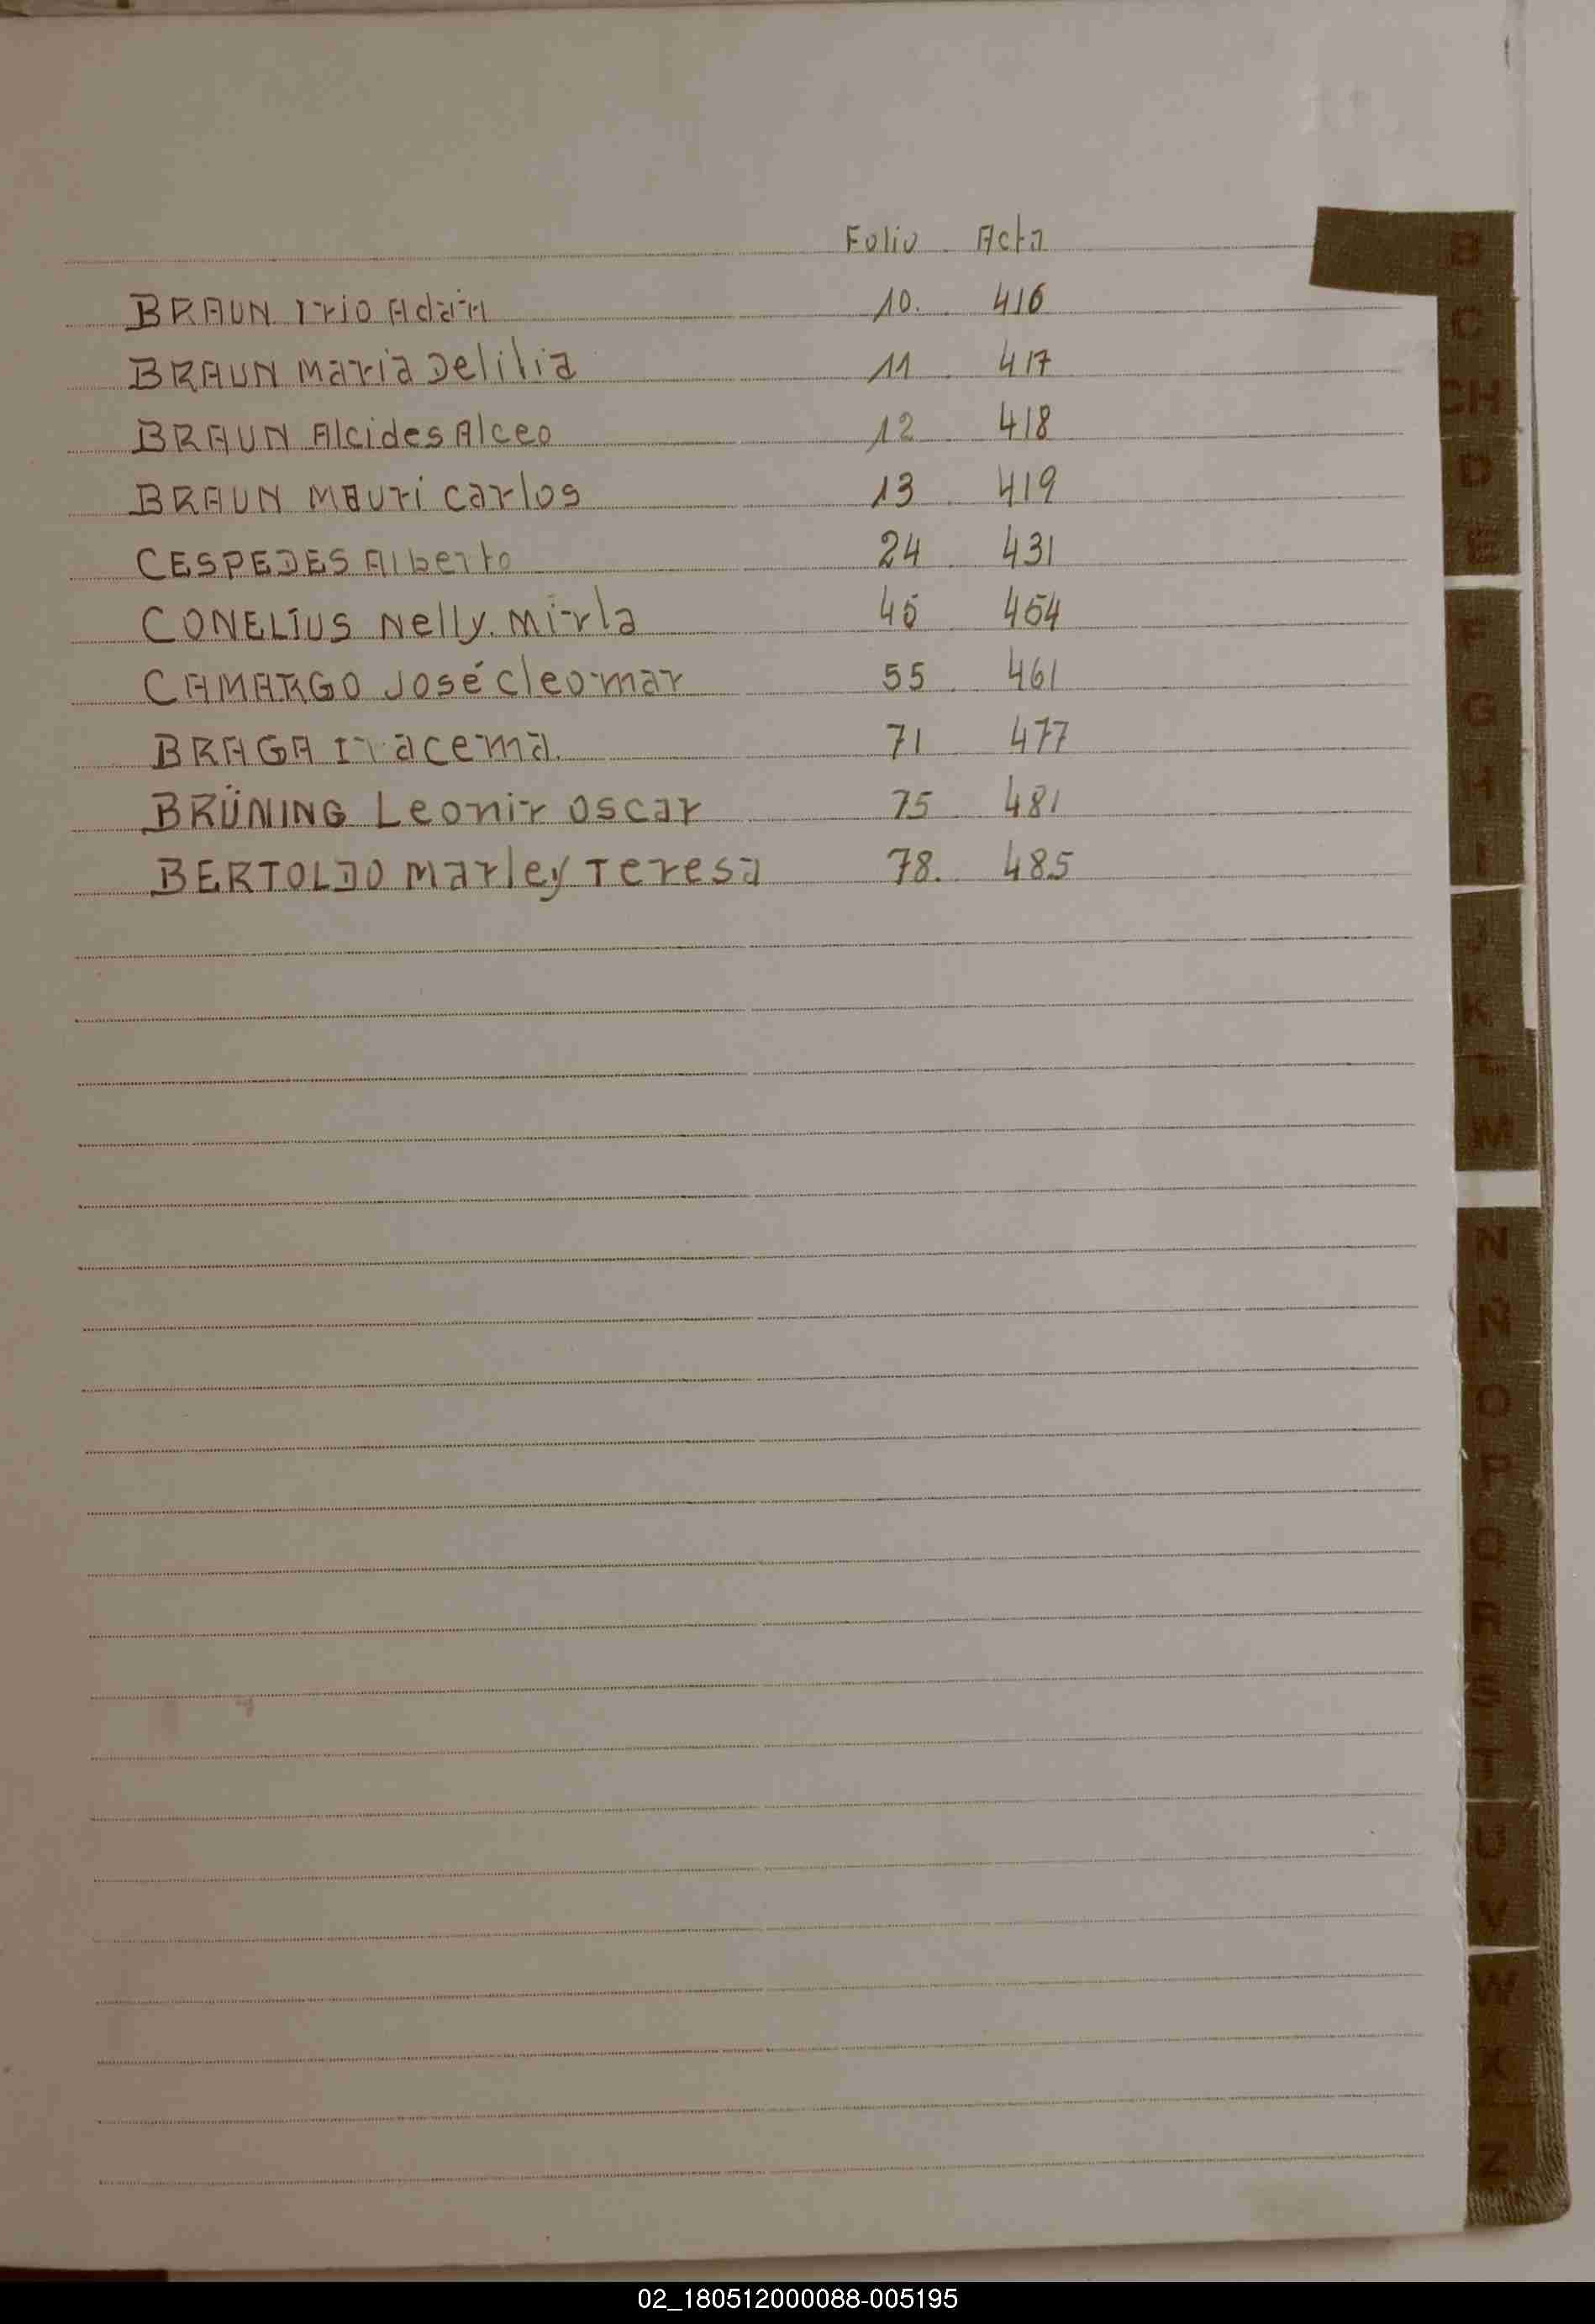 Folio Acta
BRAUN Irio Adán 10. 416
BRAUN Maria Delilia 11 417
BRAUN Alcides Alceo 12 418
BRAUN Mauri Carlos 13 419
CESPEDES Alberto 24 431
CONELIUS Nelly. Mirla 454
CAMARGO José Cleomar 55 461
BRAGA Iracema. 71 477
BRÜNING Leonir Oscar 75 481
BERTOLDO Marley Teresa 78. 485
B
C
CH
D
E
F
G
H
I
J
K
L
M
N
Ñ
O
P
Q
R
S
T
U
V
W
X
Z
02_180512000088-005195